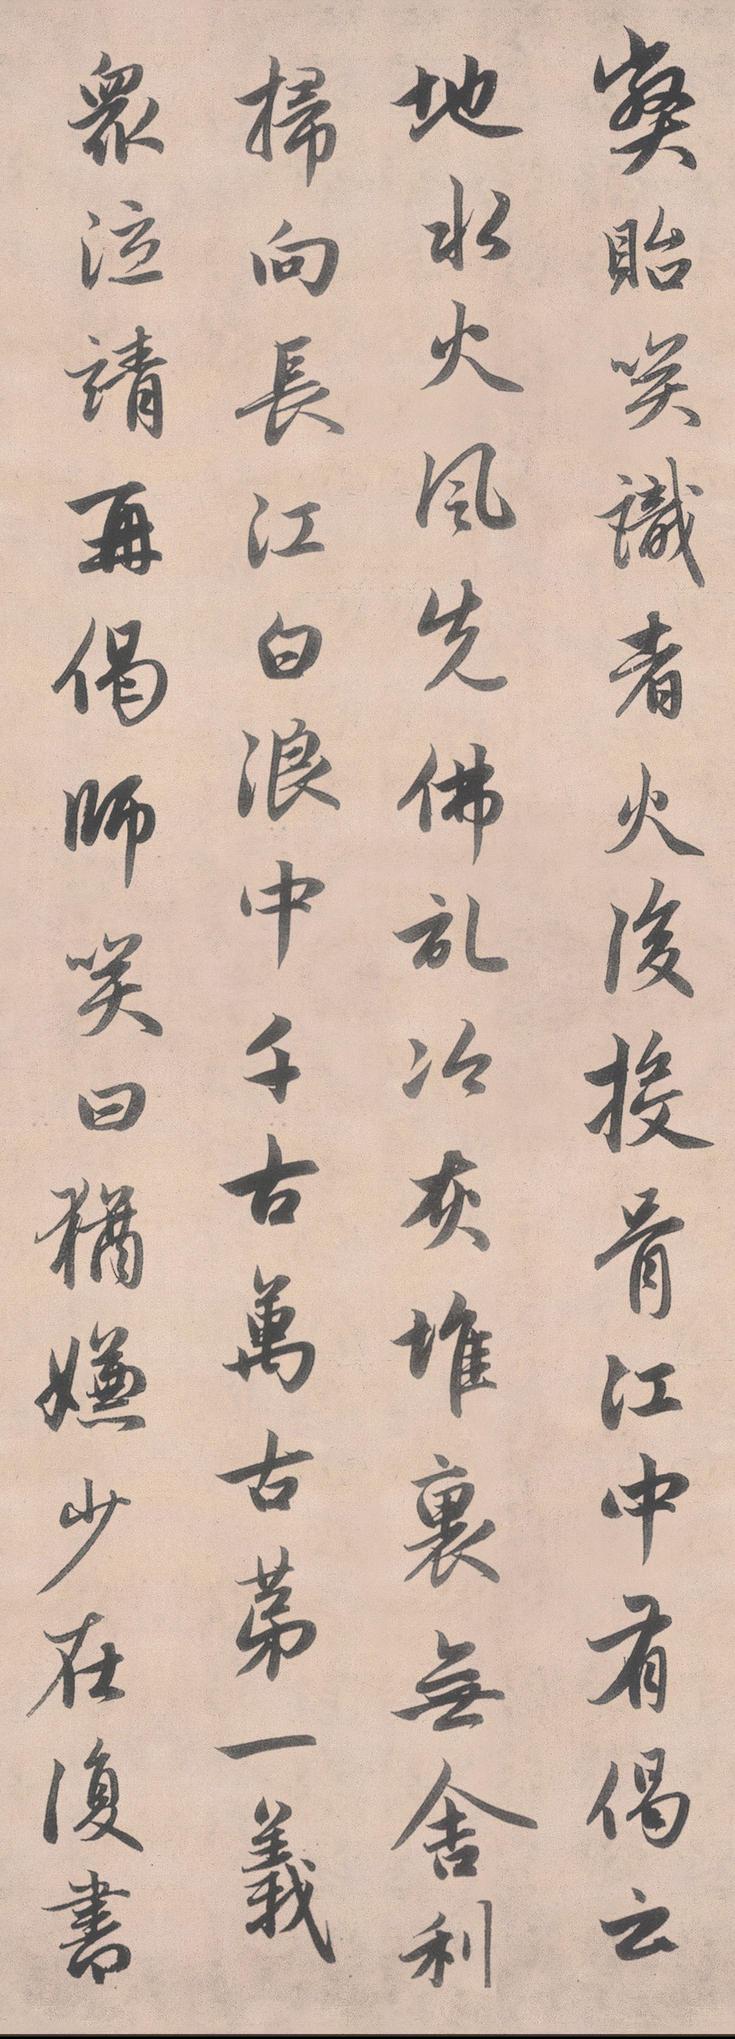 貽笑識者火後投骨江中有偈云
地水火風先佛記冷灰堆裏無舍利
掃向長江白浪中千古萬古第一義
眾泣請再偈師笑曰猶嫌少在復書